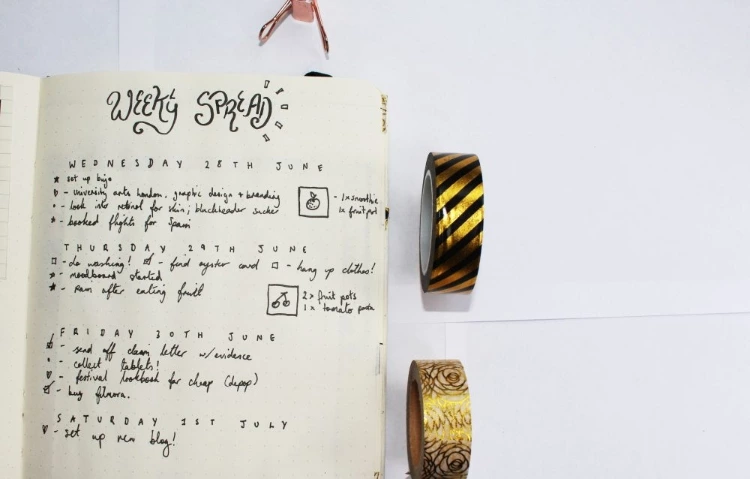 WEEKLY SPREAD
WEDNESDAY 28TH JUNE
set up bujo
- university arts london, graphic design + branding
- look into retinol for skin; blackheader sucker
- booked flights for Spain
- 1x smoothie
1x fruit pot
THURSDAY 29TH JUNE
- do washing! - find oyster card - hang up clothes!
- moodboard started
- pain after eating fruit
2x fruit pots
1x tomato pasta
FRIDAY 30TH JUNE
- send off claim letter w/evidence
- collect tablets!
- festival lookbook for cheap (depop)
- buy filmora.
SATURDAY 1ST JULY
- set up new blog!